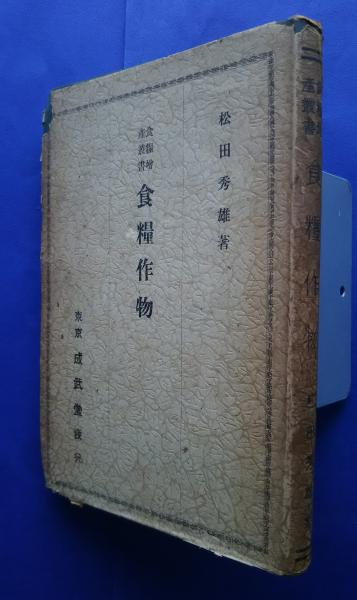 松田秀雄著
食糧増
産叢書
食糧作物
東京 成武堂發兌
産叢書
食糧作物